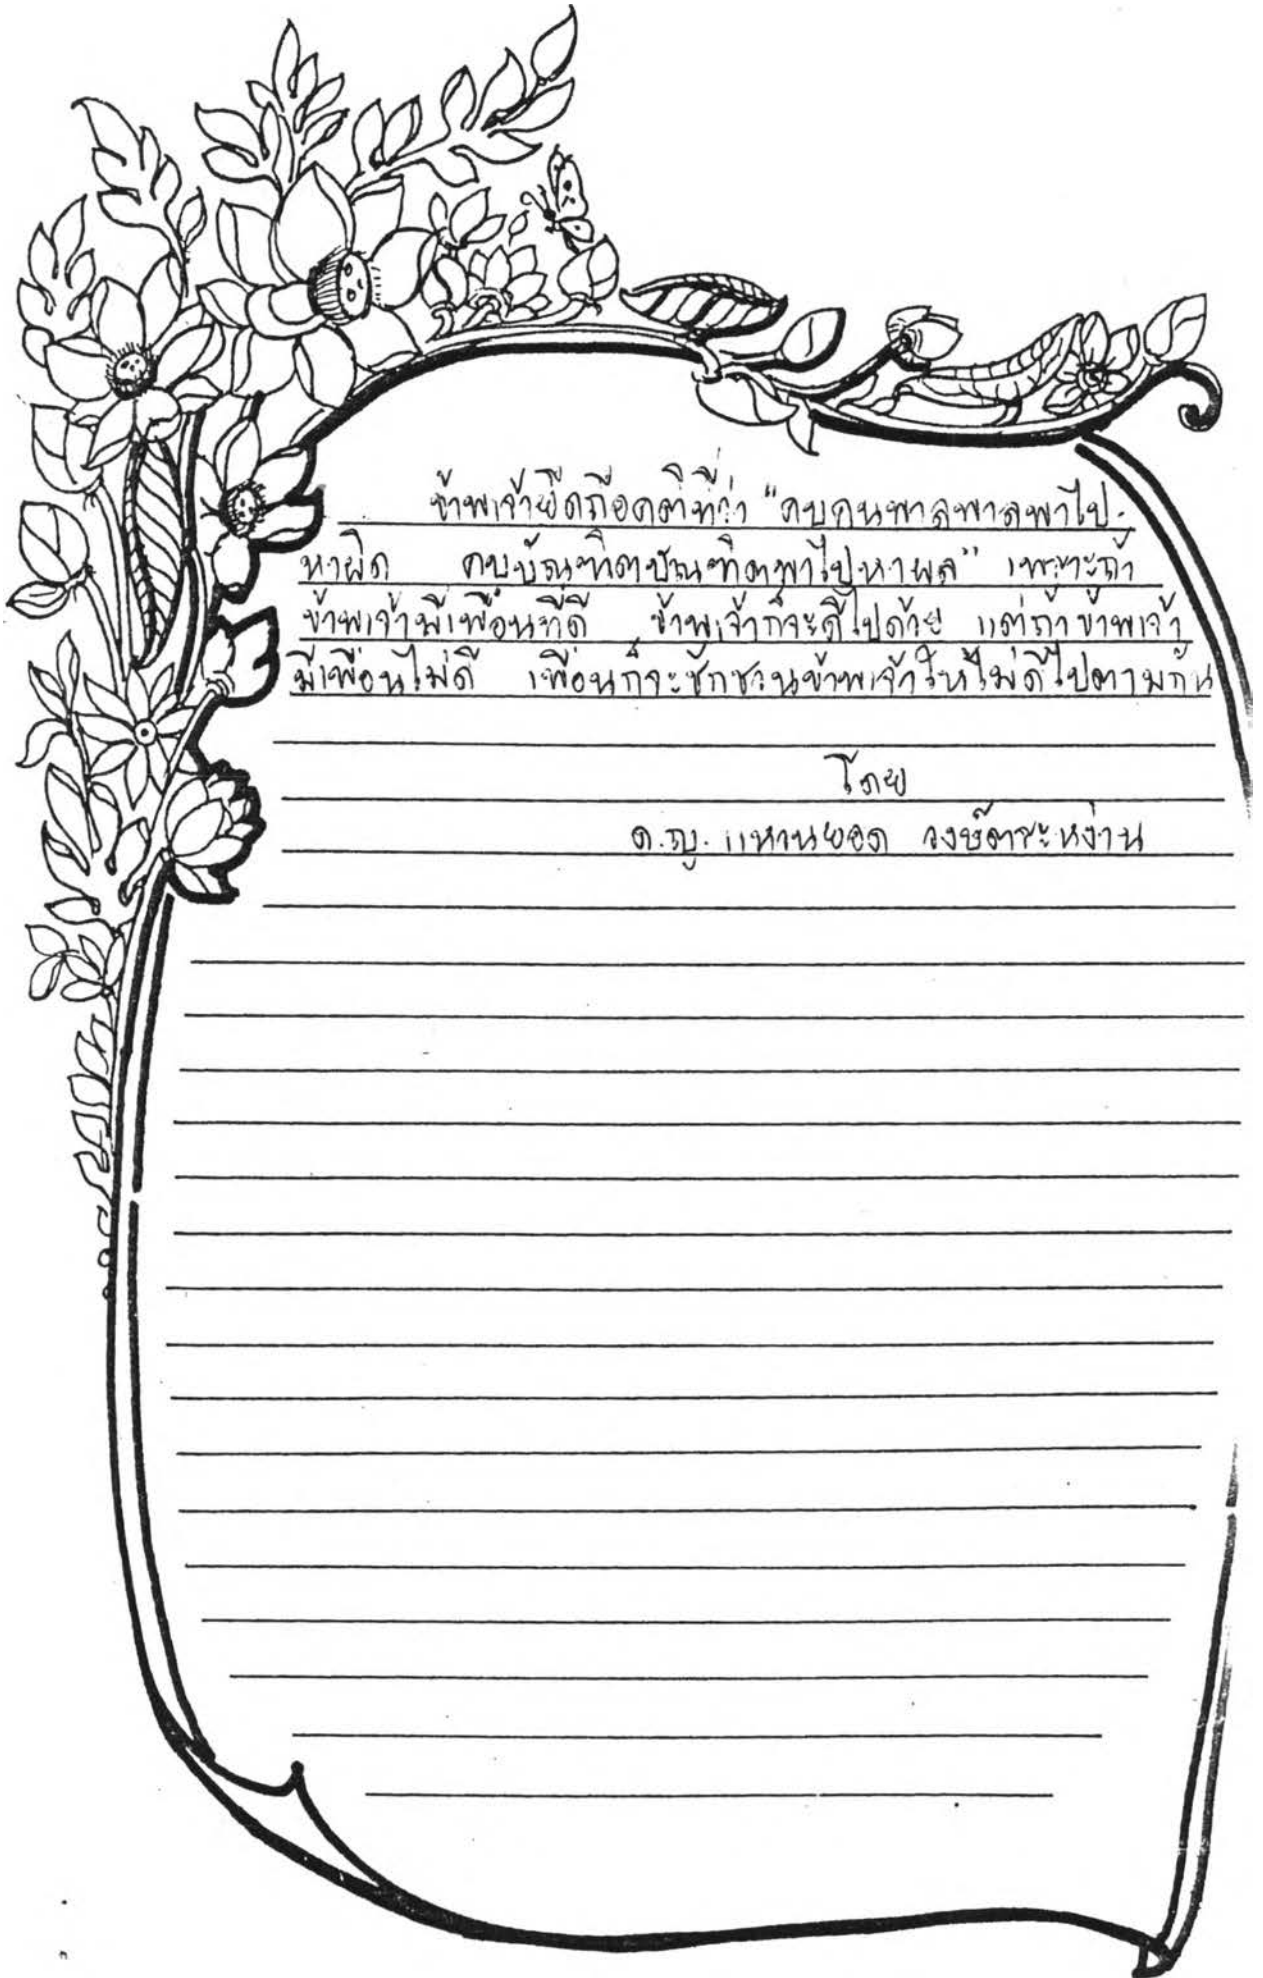 ข้าพเจ้ายึดถือคติที่ว่า "คบคนพาลพาลพาไป-
หาผิด คบบัณฑิตบัณฑิตพาไปหาผล" เพราะถ้า
ข้าพเจ้ามีเพื่อนที่ดี ข้าพเจ้าก็จะดีไปด้วย แต่ถ้าข้าพเจ้า
มีเพื่อนไม่ดี เพื่อนก็จะชักชวนข้าพเจ้าให้ไม่ดีไปตามกัน
โดย
ด.ญ. แหวนยอด วงษ์ตระหง่าน